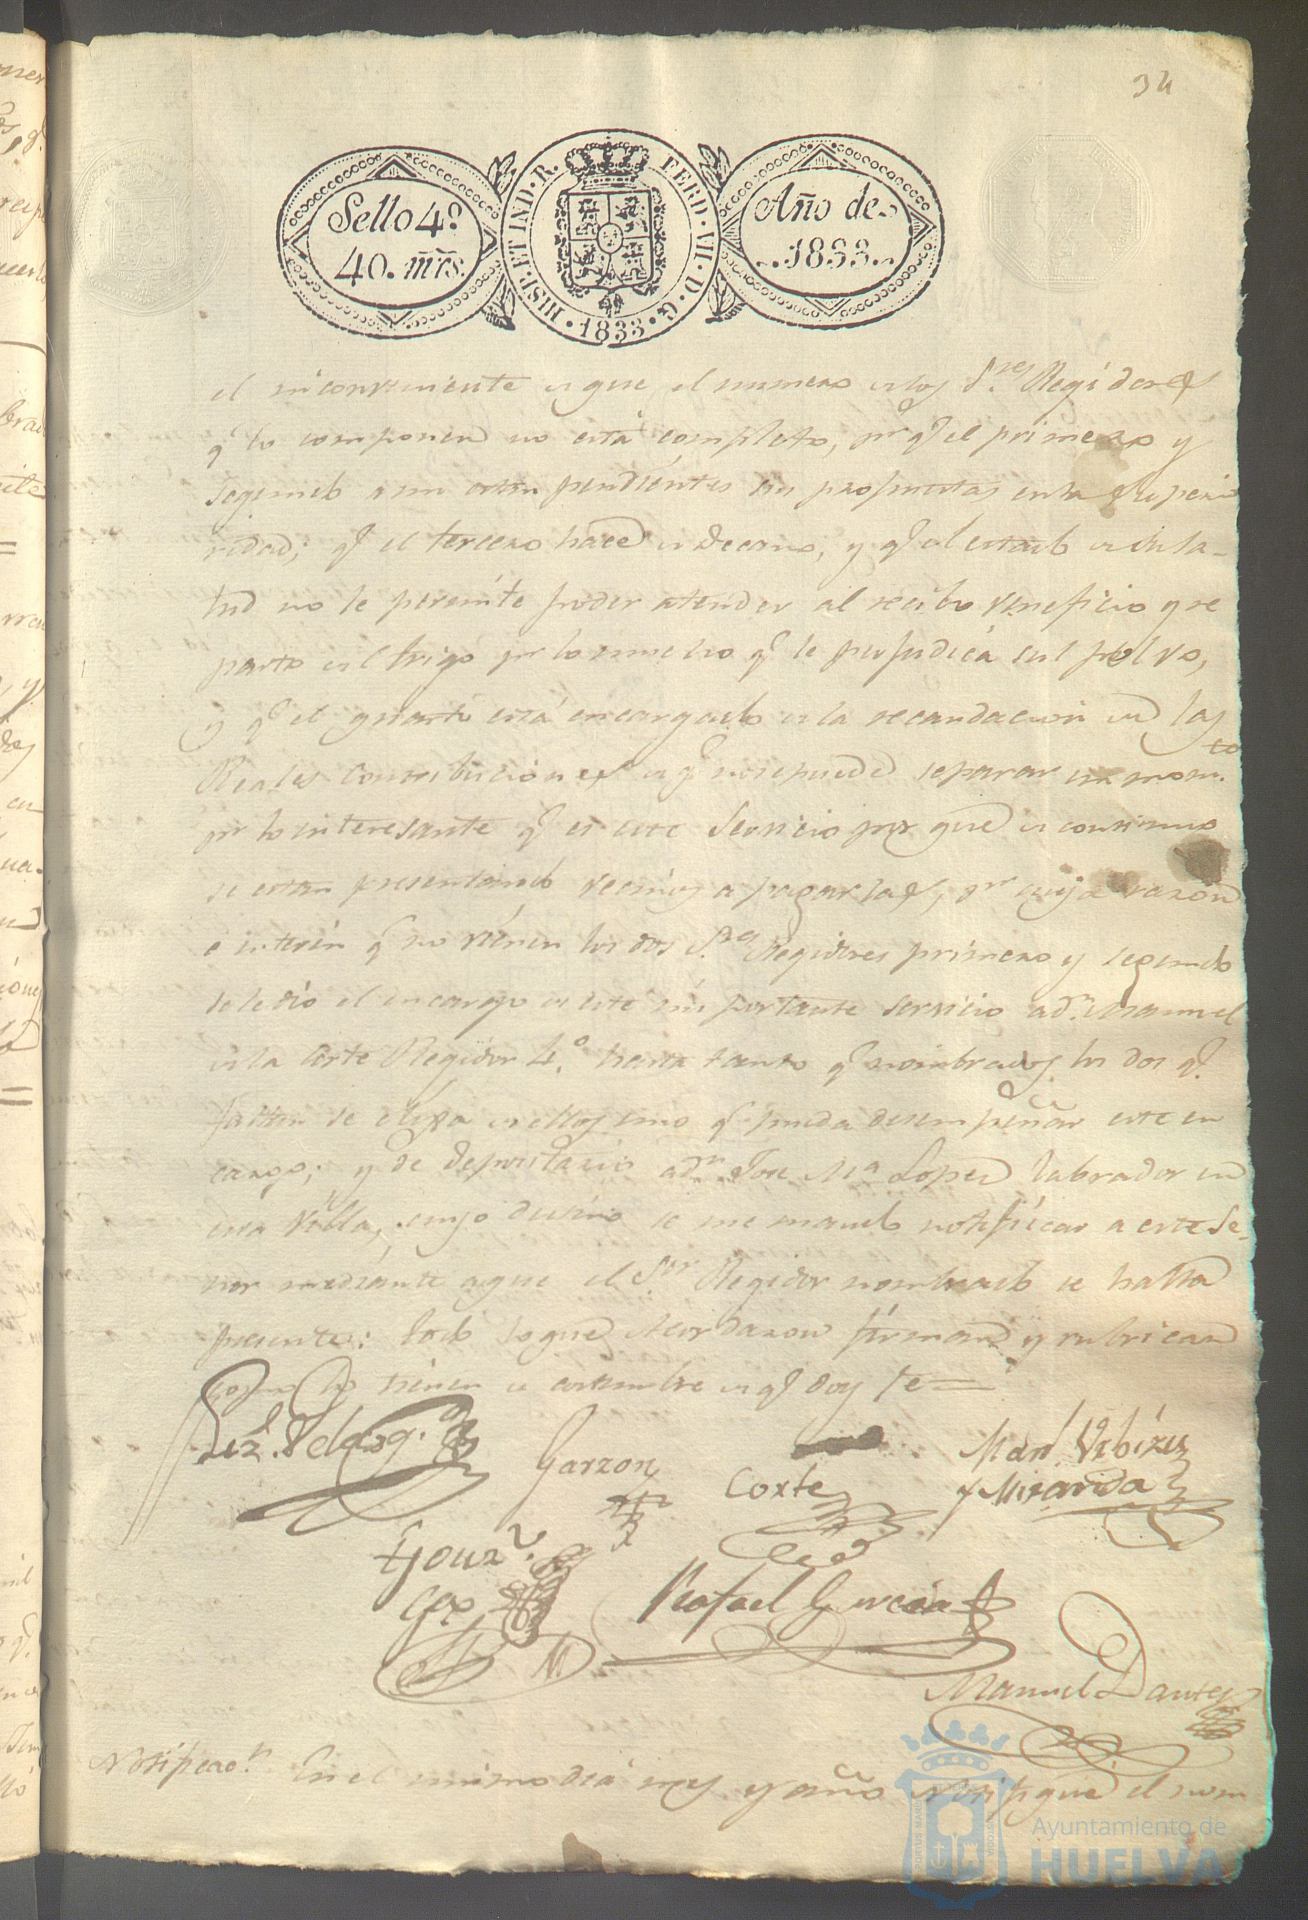 34
Sello 4º
40. mrs.
HISP. ET IND. R. FERD. VII. D. G. 1833.
Año de
1833
el inconveniente es que el numero de los S.res Regidores
q.e lo componen no está completo, pr. q.e el primero y
segundo aun estan pendientes sus propuestas en la superi
ridad; q.e el tercero hace de Decano, y q.e el estado de su sa-
lud no le permite poder atender al recibo veneficio y re
parto del trigo pr. lo mucho q.e le perjudica su polvo,
y q.e el quarto está encargado de la recaudacion de las
Reales Contribuciones de q.e no se puede separar un mom.to
pr. lo interesante q.e es este Servicio por que de continuo
se estan presentando vecinos a pagarlas, pr. cuya razon
e interin q.e no vienen los dos S.res Regidores primero y segundo
se le dio el encargo de este importante servicio a d.n Manuel
de la Corte Regidor 4.º hasta tanto q.e nombrados los dos q.e
faltan se elija de ellos uno q.e pueda desempeñar este en
cargo; y de depositario a d.n Jose M.a Lopez labrador en
esta Villa, cuyo destino se me mando notificar a este Se-
ñor mediante a que el S.or Regidor nombrado se halla
presente: todo lo que Acordaron firman y rubrican
como lo tienen de costumbre de q.e doy fe=
Garzon
Corte
Man.l Urbizu
y Miranda
Gonz.
Rafael Garcia
Manuel Dantes
Notificac.n En el mismo dia mes y año notifiqué el nom
Ayuntamiento de
HUELVA